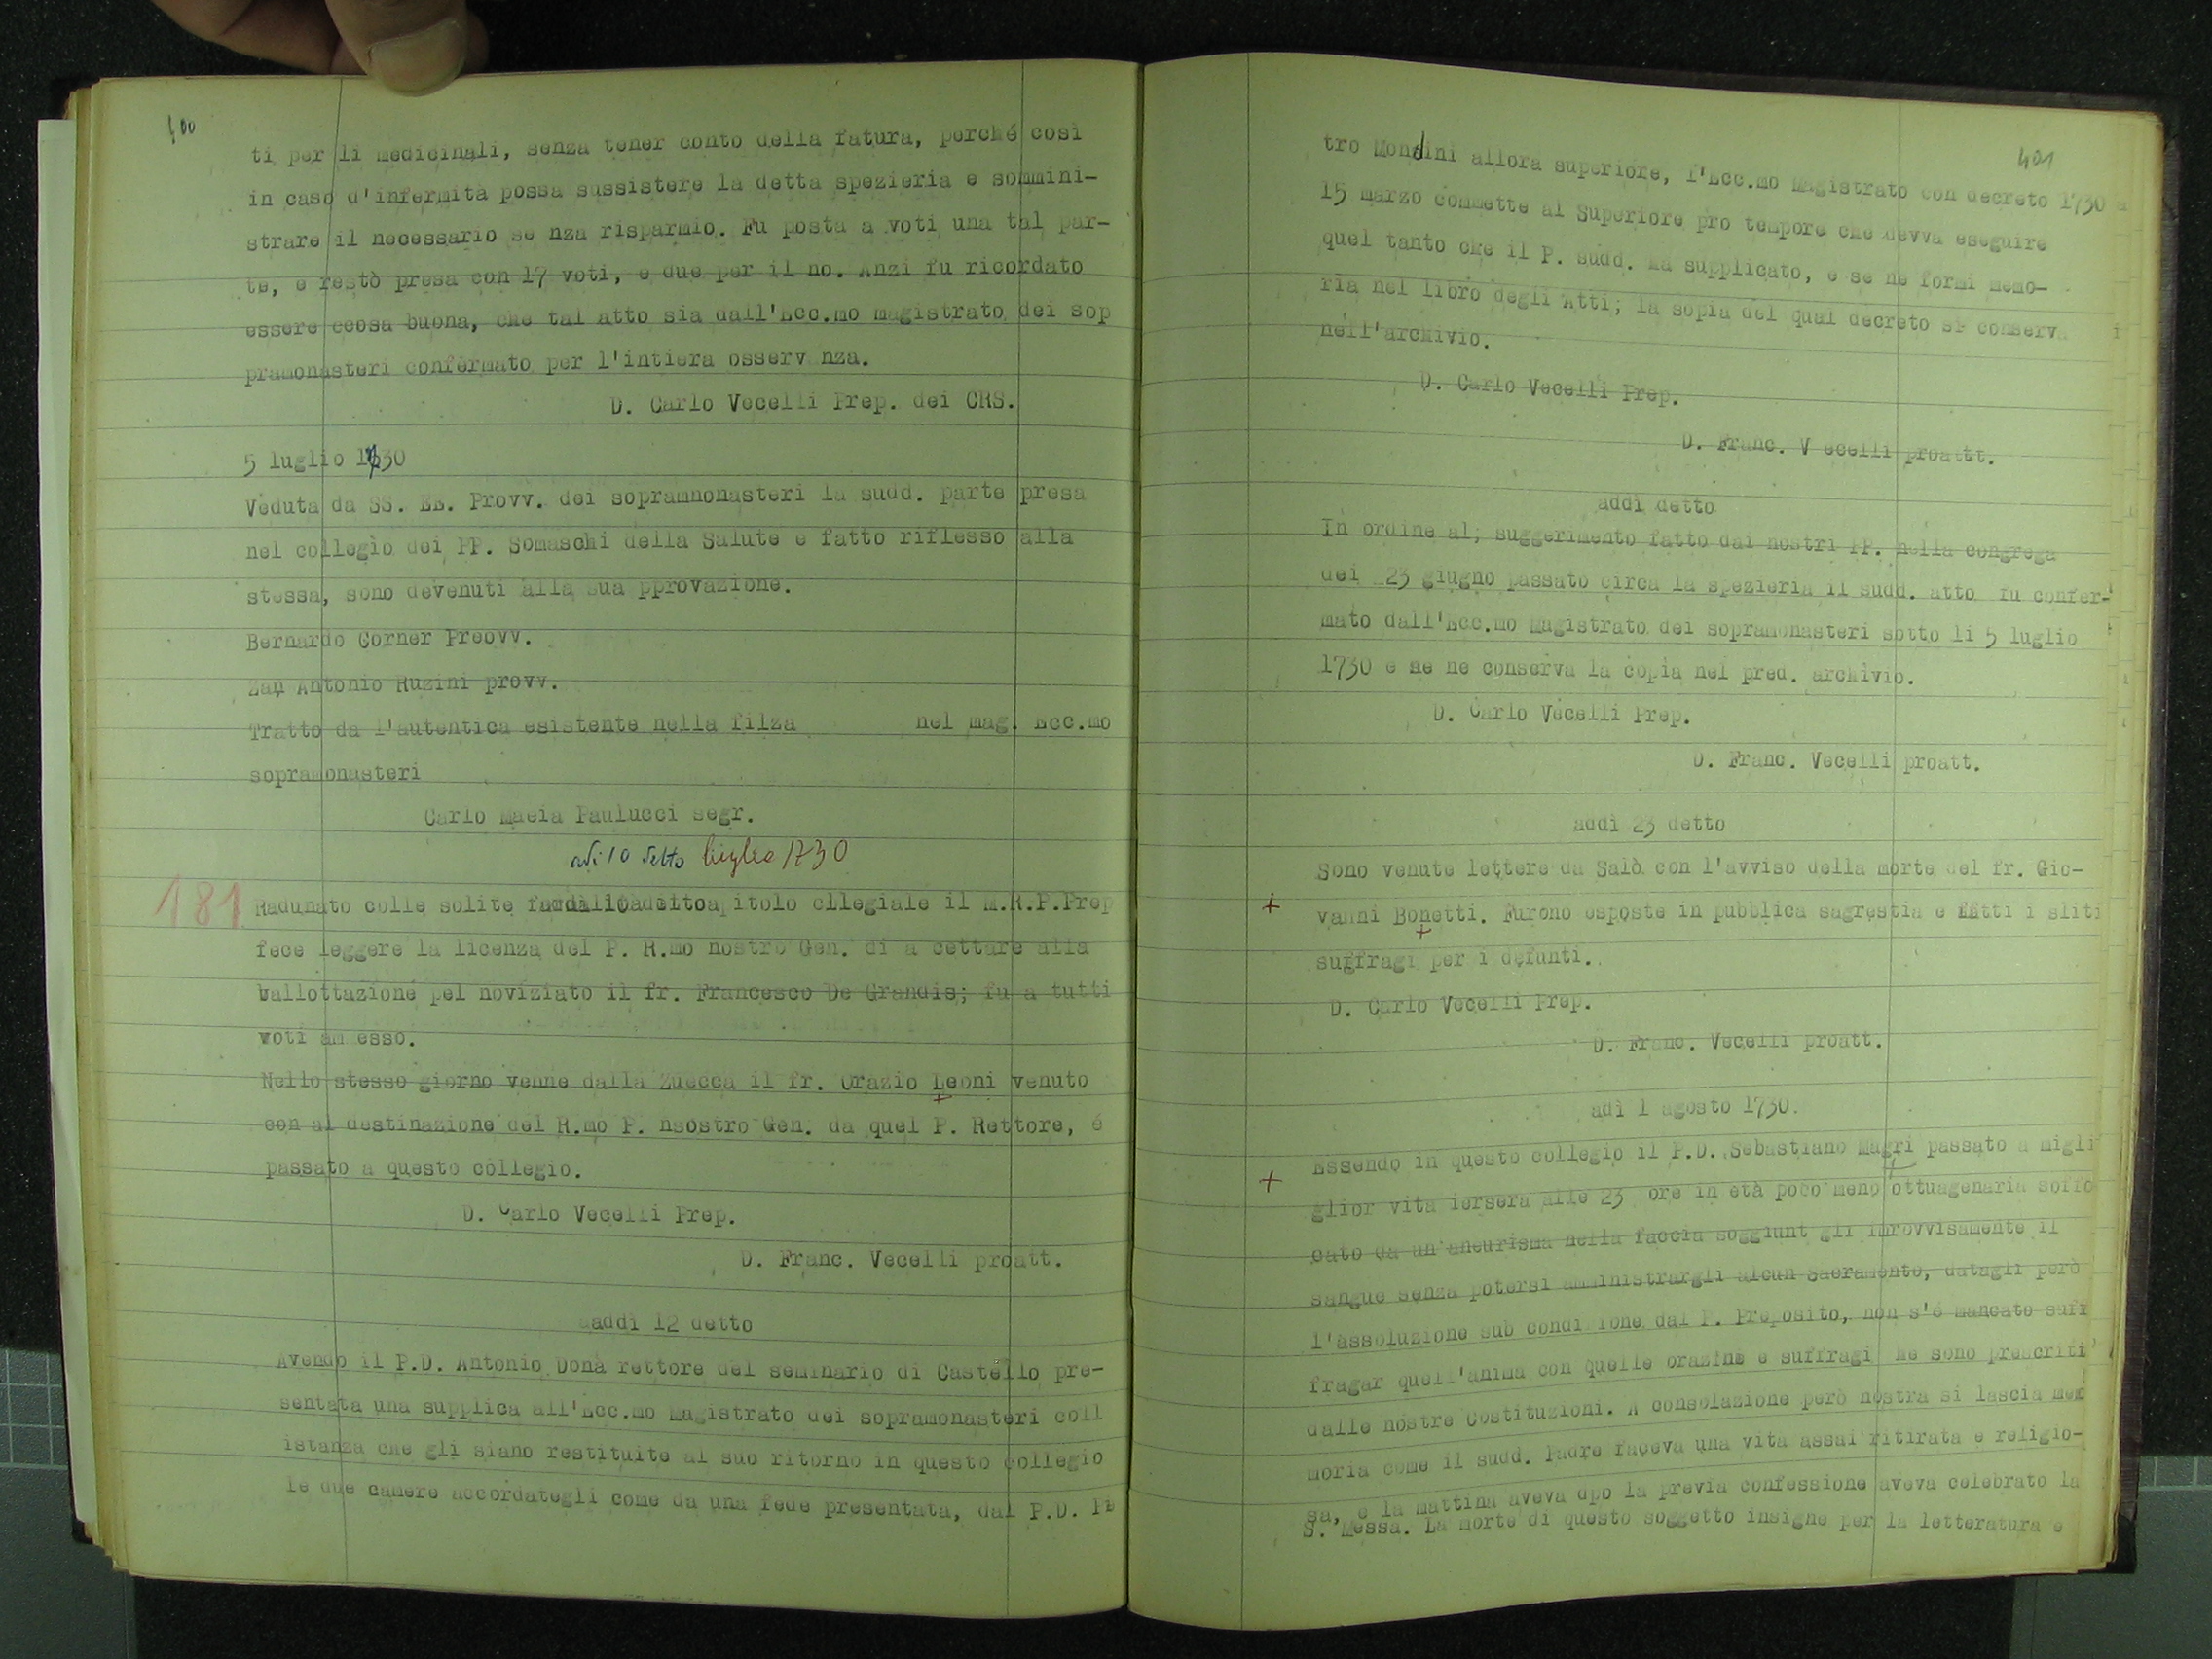 400
ti per li medicinali, senza tener conto della fatura, perché così
in caso d'infermità possa sussistere la detta spezieria e sommini-
strare il necessario se nza risparmio. Fu posta a voti una tal par-
te, e restò presa con 17 voti, e due per il no. Anzi fu ricordato
essere ccosa buona, che tal atto sia dall'Ecc.mo magistrato dei sop
pramonasteri confermato per l'intiera osserv nza.
D. Carlo Vecelli Prep. dei CRS.
5 luglio 1730
Veduta da SS. EE. Provv. dei sopramnonasteri la sudd. parte presa
nel collegio dei PP. Somaschi della Salute e fatto riflesso alla
stessa, sono devenuti alla sua pprovazione.
Bernardo Corner Preovv.
Zan Antonio Ruzini provv.
Tratto da l'autentica esistente nella filza nel mag. Ecc.mo
sopramonasteri
Carlo Maeia Paulucci segr.
adi 10 detto luglio 1730
181 Radunato colle solite itolo cllegiale il M.R.P.Prep
fece leggere la licenza del P. R.mo nostro Gen. di a cettare alla
ballottazione pel noviziato il fr. Francesco De Grandis; fu a tutti
voti am esso.
Nello stesso giorno venne dalla Zuecca il fr. Orazio Leoni venuto
con al destinazione del R.mo P. nsostro Gen. da quel P. Rettore, é
passato a questo collegio.
D. Carlo Vecelli Prep.
D. Franc. Vecelli proatt.
addì 12 detto
Avendo il P.D. Antonio Donà rettore del seminario di Castello pre-
sentata una supplica all'Ecc.mo Magistrato dei sopramonasteri coll
istanza che gli siano restituite al suo ritorno in questo collegio
le due camere accordategli come da una fede presentata, dal P.D. Pi
401
tro Mondini allora superiore, l'Ecc.mo Magistrato con decreto 1730 a
15 marzo commette al Superiore pro tempore che devva eseguire
quel tanto che il P. sudd. ha supplicato, e se ne formi memo-
ria nel libro degli Atti; la sopia del qual decreto si conserva i
nell'archivio.
D. Carlo Vecelli Prep.
D. Franc. V ecelli proattt.
addì detto
In ordine al; suggerimento fatto dai nostri PP. nella congrega
dei 23 giugno passato circa la spezieria il sudd. atto fu confer-
mato dall'Ecc.mo Magistrato dei sopramonasteri sotto li 5 luglio
1730 e se ne conserva la copia nel pred. archivio.
D. Carlo Vecelli Prep.
D. Franc. Vecelli proatt.
addì 23 detto
Sono venute lettere da Salò con l'avviso della morte del fr. Gio-
+ vanni Bonetti. Furono esposte in pubblica sagrestia e fatti i sliti
suffragi per i defunti.
D. Carlo Vecelli Prep.
D. Franc. Vecelli proatt.
adì 1 agosto 1730.
Essendo in questo collegio il P.D. Sebastiano Magri passato a migli
+ glior vita iersera alle 23 ore in età poco meno ottuagenaria soffo
cato da un'aneurisma nella faccia soggiunt gli improvvisamente il
sangue senza potersi amministrargli alcun Sacramento, datagli però
l'assoluzione sub condi ione dal P. Preposito, non s'é mancato suff
fragar quell'anima con quelle orazine e suffragi he sono prescriti
dalle nostre Costituzioni. A consolazione però nostra si lascia mem
moria come il sudd. Padre faceva una vita assai ritirata e religio-
sa, e la mattina aveva dpo la previa confessione aveva celebrato la
S. Messa. La morte di questo soggetto insigne per la letteratura e